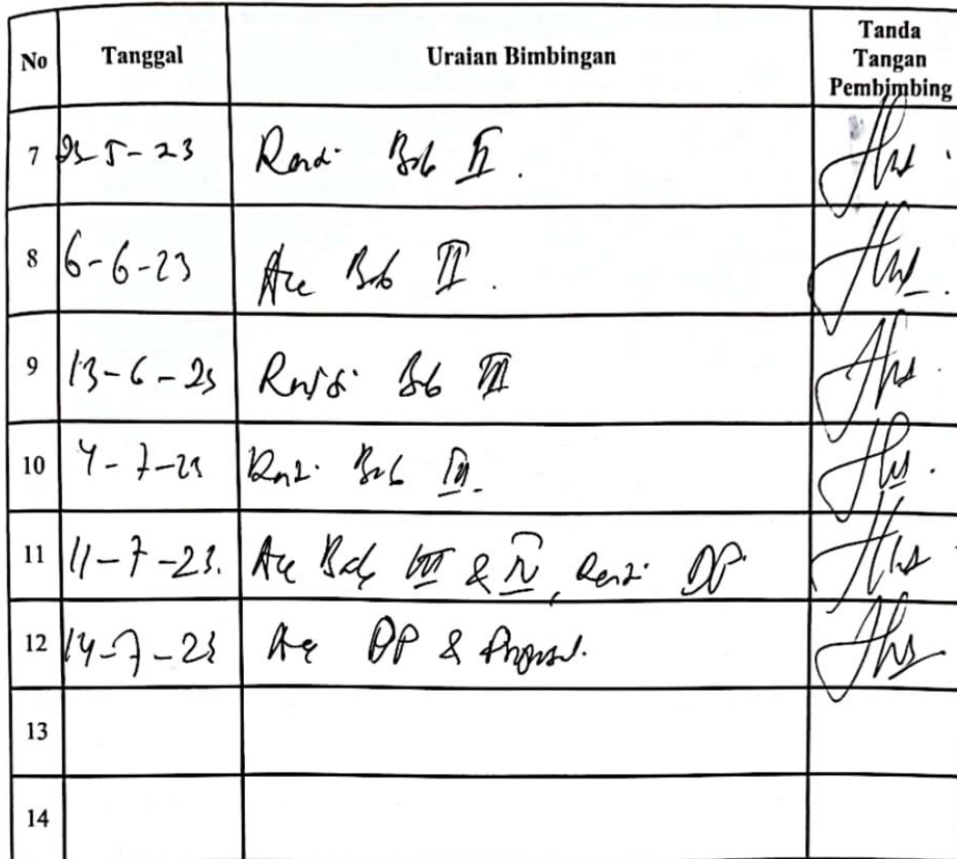 No Tanggal Uraian Bimbingan Tanda Tangan Pembimbing
7 23-5-23 Revisi Bab II.
8 6-6-23 Acc Bab II.
9 13-6-23 Revisi Bab III
10 4-7-23 Revisi Bab III.
11 11-7-23. Acc Bab III & IV, Revisi DP
12 14-7-23 Acc DP & Proposal.
13
14